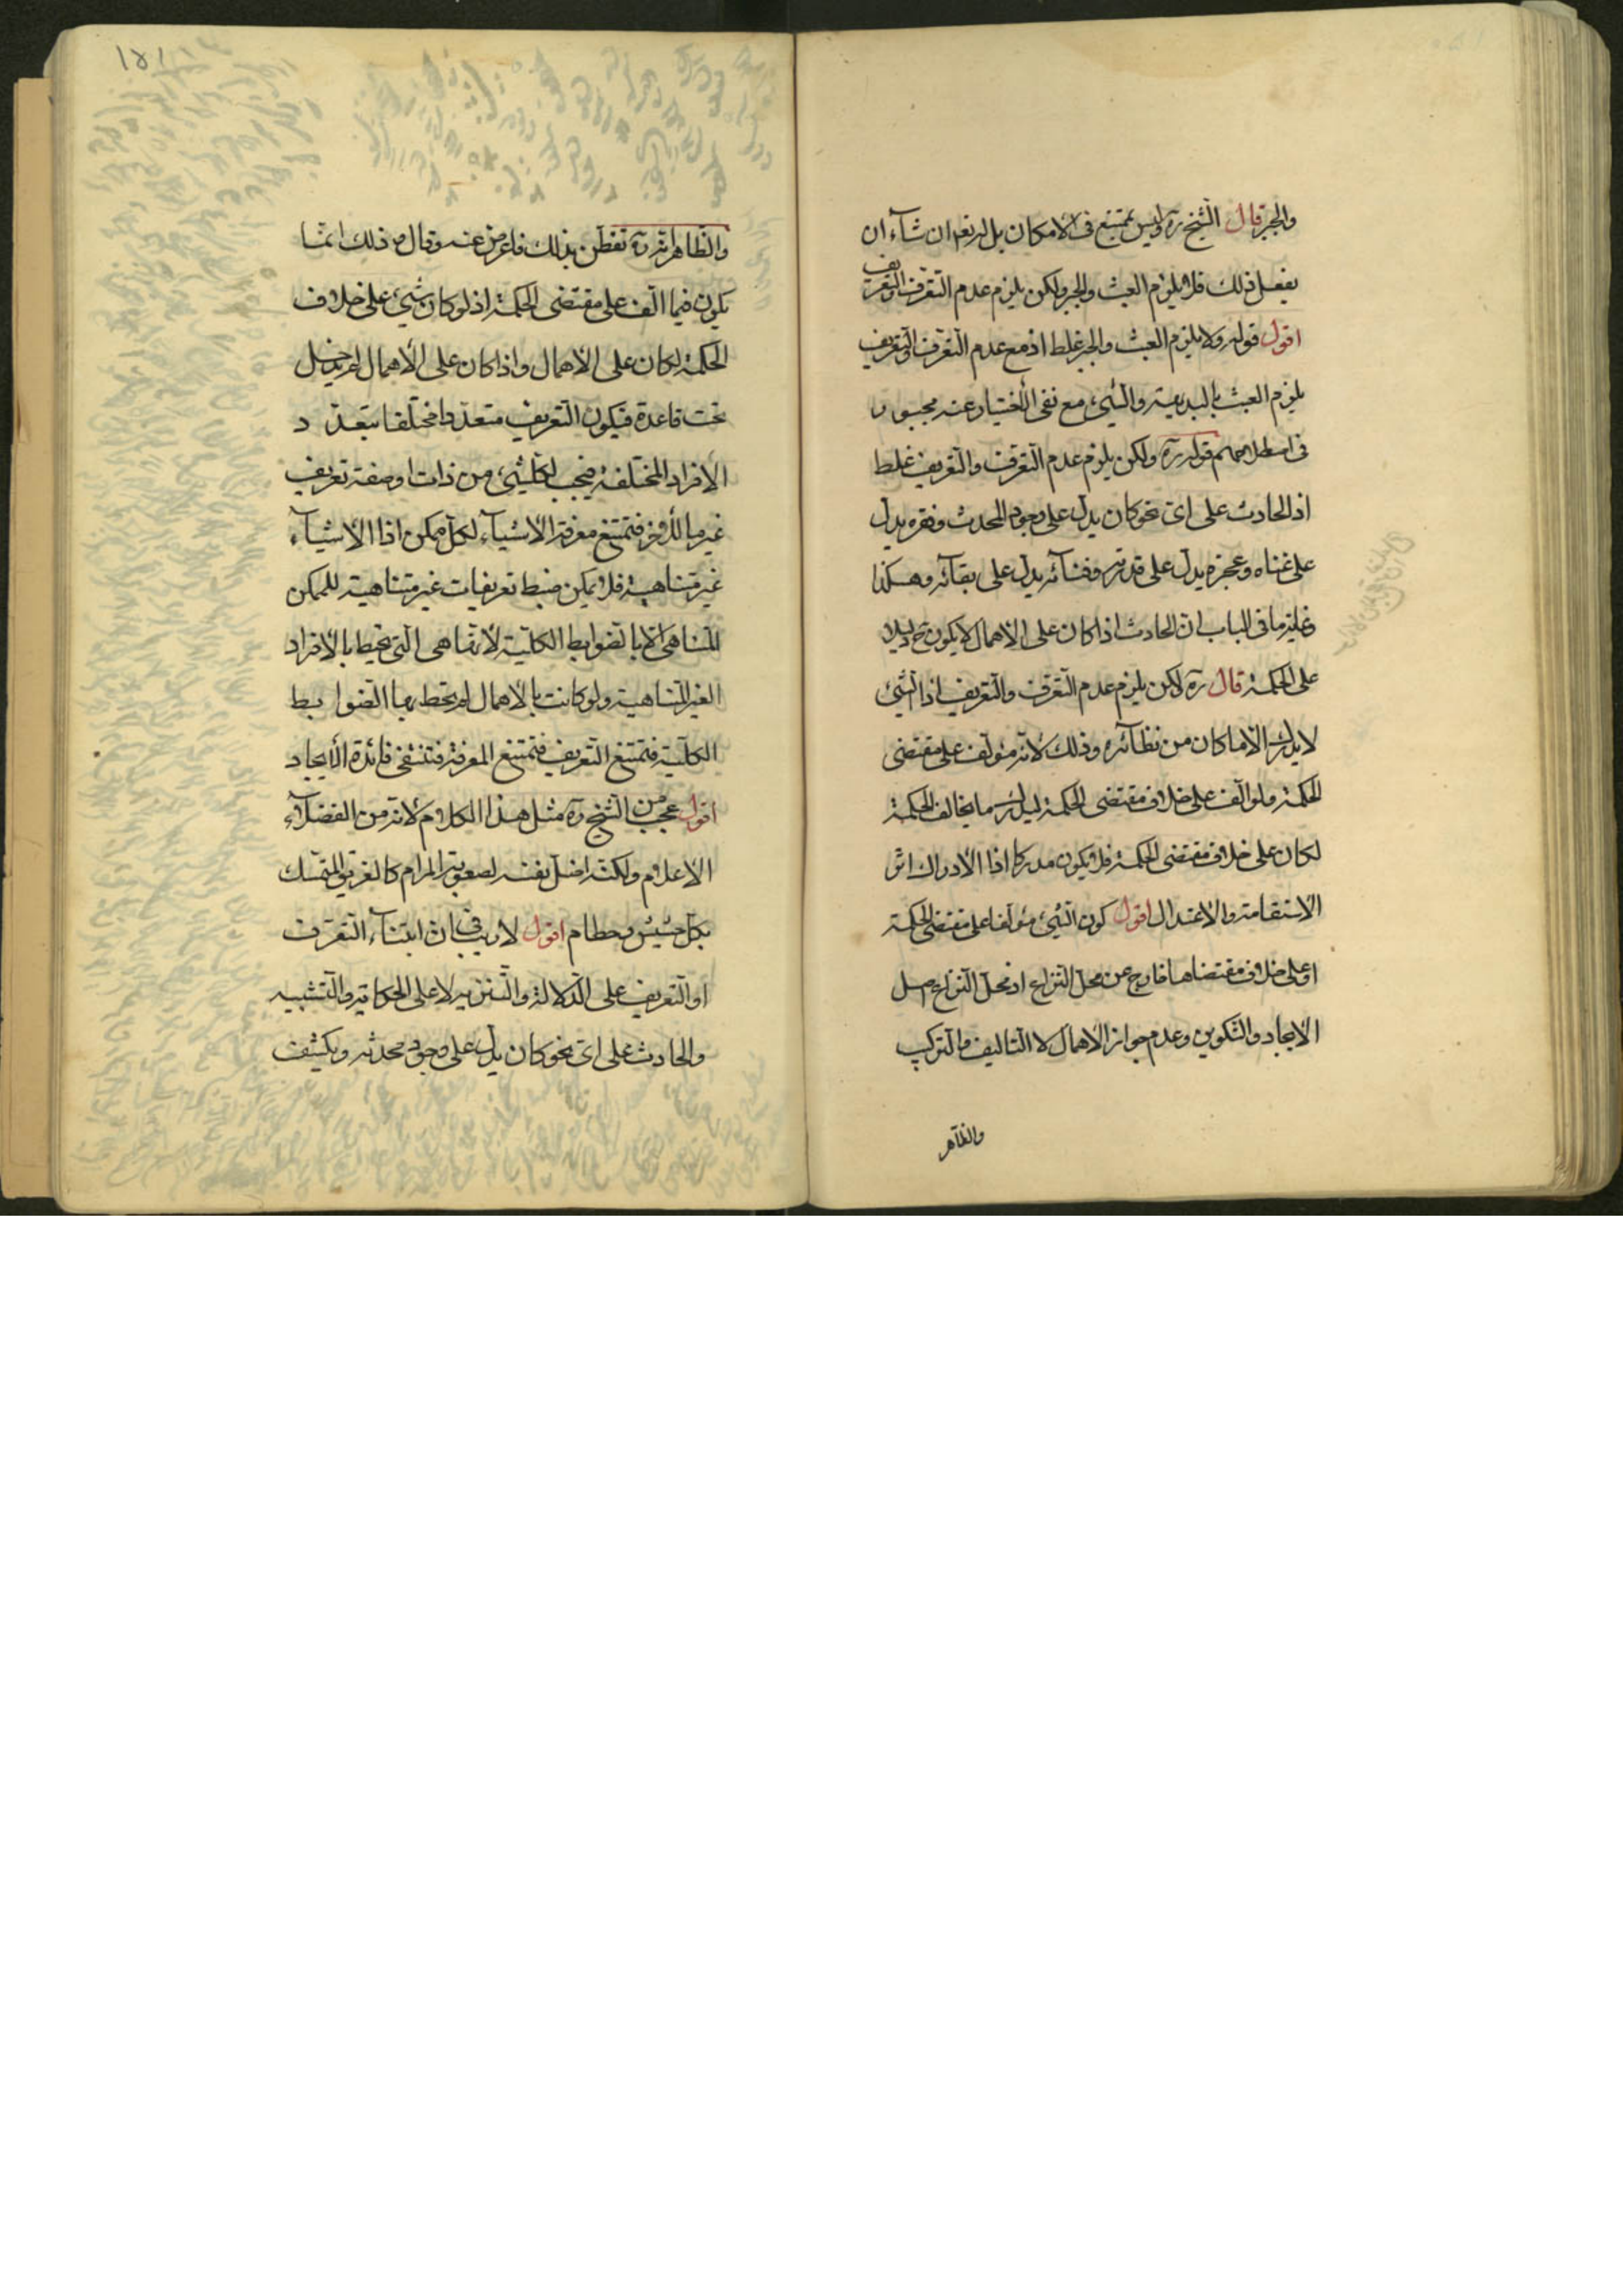 والجبر قال الشيخ ره وليس بممتنع فى الامكان بل له تعہ ان شآء ان
يفعل ذلك فلا يلزم العبث والجبر ولكن يلزم عدم التعرّف والتعريف
اقول قوله ولا يلزم العبث والجبر غلط اذ مع عدم التعرّف والتعريف
يلزم العبث بالبديهية والشيء مع نفى الاختيار عنه مجبور
فى اصطلاحهم قوله ره ولكن يلزم عدم التعرّف والتعريف غلط
اذ الحادث على اىّ نحو كان يدلّ على وجود المحدث وفقره يدلّ
على غناه وعجزه يدلّ على قدرته وفنآئه يدلّ على بقآئه وهكذا
وغاية ما فى الباب انّ الحادث اذا كان على الاهمال لا يكون ح دليلا
على الحكمة قال ره لكن يلزم عدم التعرّف والتعريف اذا الشئ
لا يدرك الّا ما كان من نظآئره وذلك لانّه مؤلّف على مقتضى
الحكمة فلو الّف على خلاف مقتضى الحكمة ليدرك ما يخالف الحكمة
لكان على خلاف مقتضى الحكمة فلا يكون مدركا اذا الأدراك اثر
الاستقامة والاعتدال اقول كون الشئ مؤلفا على مقتضى الحكمة
او على خلاف مقتضاها خارج عن محلّ النزاع اذ محلّ النزاع اصل
الايجاد والتكوين وعدم جواز الاهمال لا التاليف والتركيب
والظآهر
١٥١
والظاهر انّه ره تفطّن بذلك فاعرض عنه وقال ره ذلك انّما
يكون فيما الّف على مقتضى الحكمة اذ لو كان شيء على خلاف
الحكمة لكان على الاهمال واذا كان على الاهمال لم يدخل
تحت قاعدة فيكون التعريف متعدّدا مختلفا بتعدّد
الافراد المختلفة فيجب لكلّ شئ من ذات او صفة تعريف
غير ما للأخر فتمتنع معرفة الاشيآء لكلّ ممكن اذا الاشيآء
غير متناهية فلا يمكن ضبط تعريفات غير متناهية للممكن
المتناهى الّا بالضوابط الكليّة لا تتناهى الّتى تحيط بالأفراد
الغير المتناهية ولو كانت بالاهمال لم يحط بها الضوابط
الكلّية فتمتنع التعريف فتمتنع المعرفة فتنتفى فائدة الأيجاد
اقول عجب من الشيخ ره مثل هذا الكلام لانّه من الفضلآء
الاعلام ولكنّه اضلّ نفسه لصعوبة المرام كالغريق المتمسك
بكلّ حشيش وحطام اقول لا ريب فى انّ ابتنآء التعرّف
او التعريف على الدّلالة والتنزيه لا على الحكاية والتشبيه
والحادث على اىّ نحو كان يدلّ على وجود محدثه ويكشف